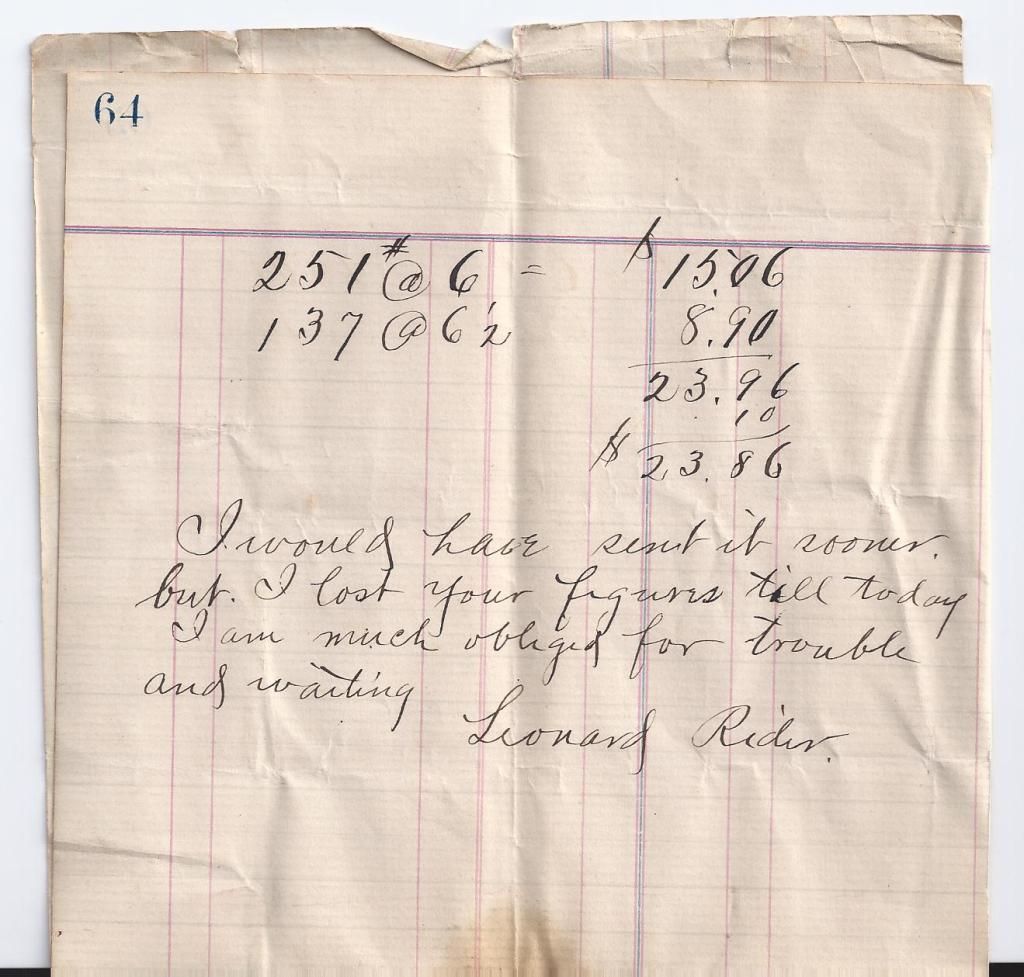 64
251# @ 6 = $15.06
137 @ 6½ 8.90
23.96
10
$23.86
I would have sent it sooner.
but. I lost your figures till today
I am much obliged for trouble
and waiting
Leonard Rider.